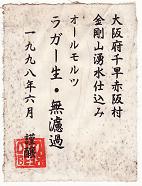 大阪府千早赤阪村
金剛山湧水仕込み
オールモルツ
ラガー生・無濾過
一九九八年六月
謹醸